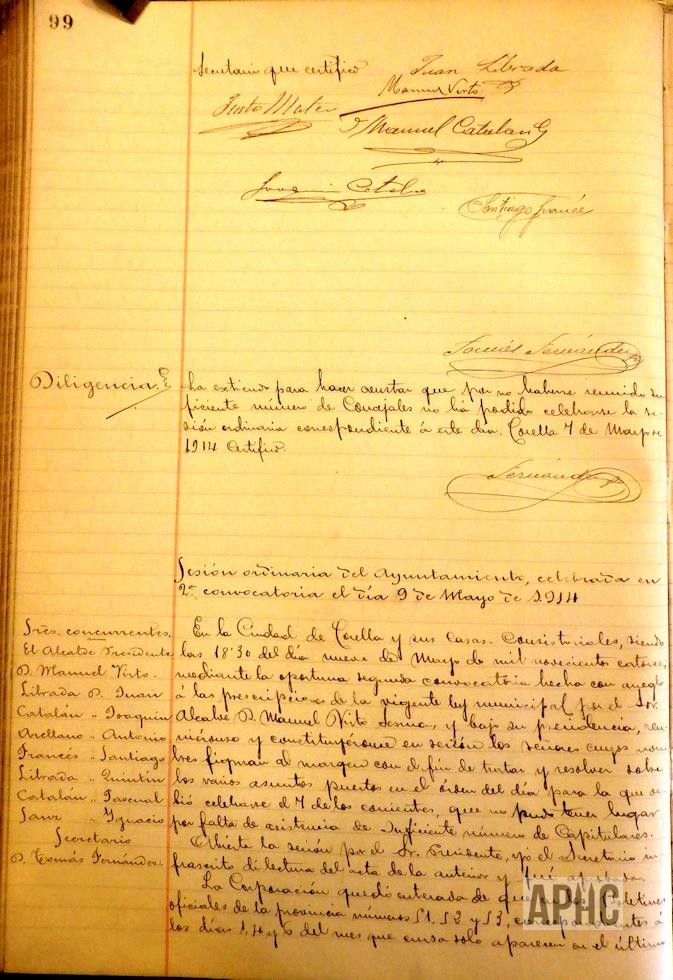 99
Secretario que certifico
Juan Librada
Manuel Virto
Justo Mateo
Manuel Catalan
Joaquin Catalan
Santiago Francés
Tomás Fernández
Diligencia. Se ha extiende para hacer constar que por no haberse reunido su
ficiente número de Concejales no há podido celebrarse la se
sión ordinaria correspondiente á este dia. Corella 7 de Mayo de
1914 Certifico.
Fernández
Sesión ordinaria del Ayuntamiento, celebrada en
2ª convocatoria el día 9 de Mayo de 1914
Sres. concurrentes.
El Alcalde Presidente
D. Manuel Virto.
Librada D. Juan
Catalán " Joaquin
Arellano " Antonio
Francés " Santiago
Librada " Quintín
Catalán " Pascual
Sanz " Ygnacio
Secretario
D. Tomás Fernández.
En la Ciudad de Corella y sus Casas-Consistoriales, siendo
las 18'30 del día nueve de Mayo de mil novecientos catorce,
mediante la oportuna segunda convocatoria hecha con arreglo
á las prescripciones de la vigente ley municipal por el Sr.
Alcalde D. Manuel Virto Sesma, y bajo su presidencia, reu
niéronse y constituyéronse en sesión los señores cuyos nom
bres figuran al margen con el fin de tratar y resolver sobre
los varios asuntos puestos en el órden del día para la que de
bió celebrarse el 7 de los corrientes, que no pudo tener lugar
por falta de asistencia de suficiente número de Capitulares.
Abierta la sesión por el Sr. Presidente, yo el Secretario in
frascrito dí lectura del acta de la anterior y fué aprobada.
La Corporación quedó enterada de que en los Boletines
oficiales de la provincia números 51, 52 y 53, correspondientes á
los días 1, 4 y 6 del mes que cursa solo aparecen en el último
APHC